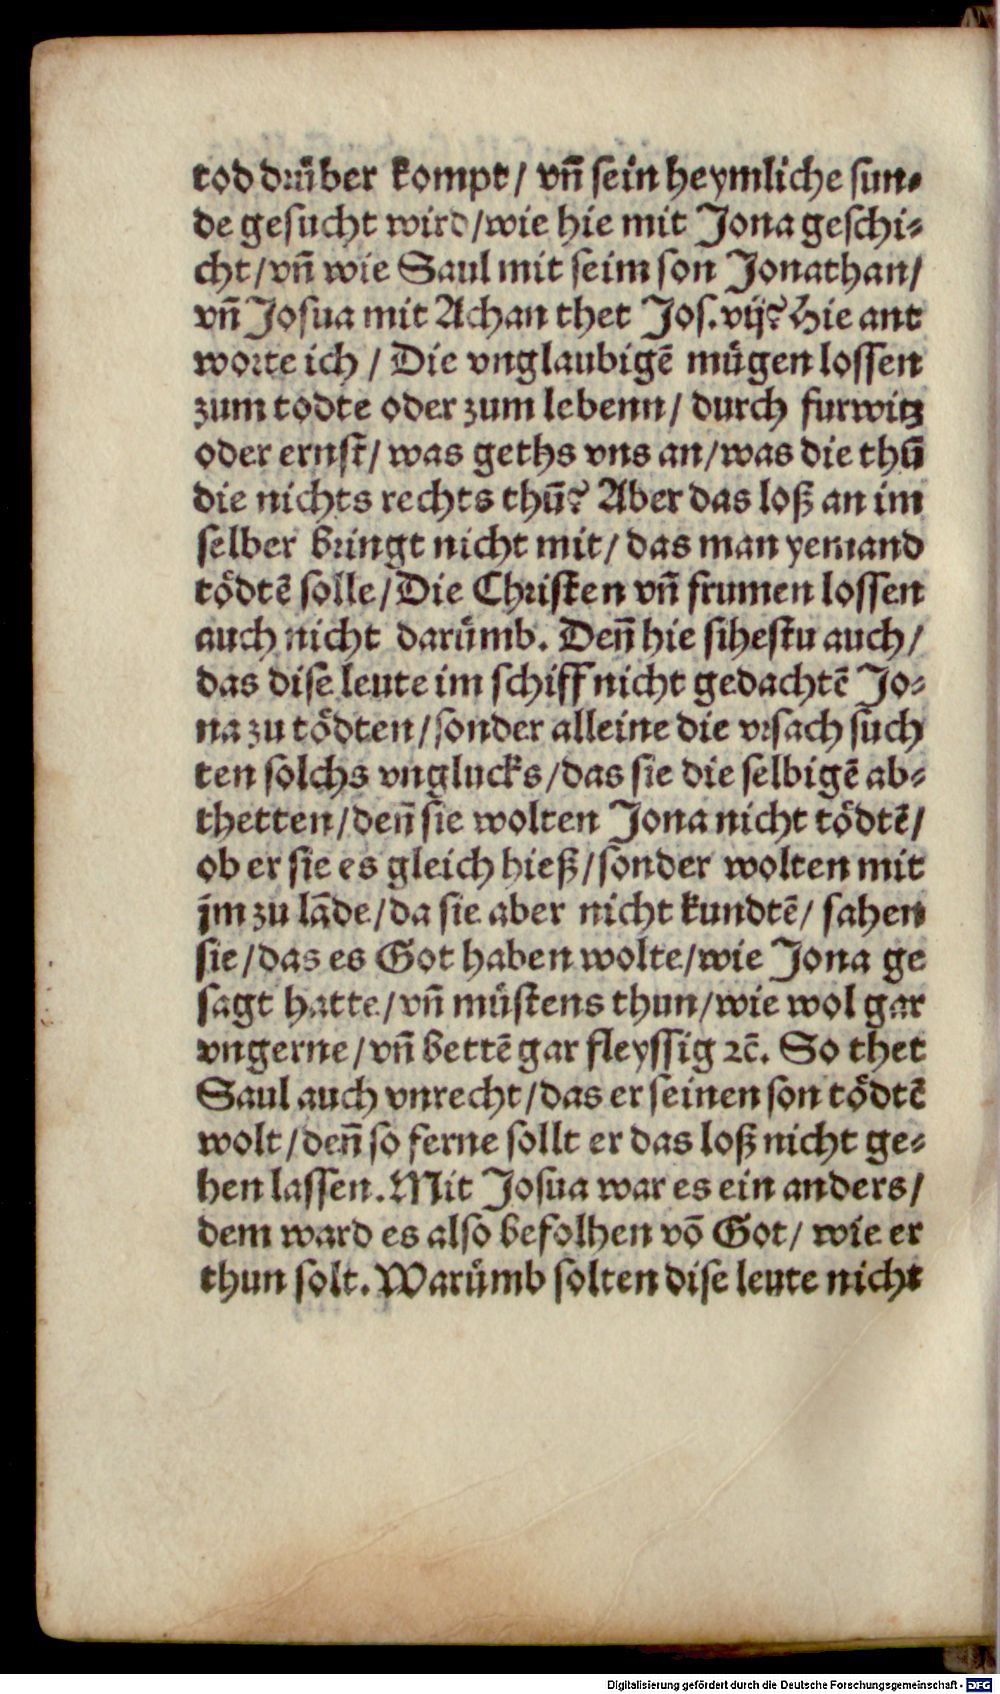 tod drüber kompt / vñ sein heymliche sun⸗
de gesucht wird / wie hie mit Jona geschi⸗
cht / vñ wie Saul mit seim son Jonathan /
vñ Josua mit Achan thet Jos. vij? Hie ant
worte ich / Die vnglaubigē mügen lossen
zum todte oder zum lebenn / durch furwitz
oder ernst / was geths vns an / was die thū
die nichts rechts thū? Aber das loß an im
selber bringt nicht mit / das man yemand
tödtē solle / Die Christen vñ frumen lossen
auch nicht darümb. Deñ hie sihestu auch /
das dise leute im schiff nicht gedachtē Jo⸗
na zu tödten / sonder alleine die vrsach such
ten solchs vnglucks / das sie die selbigē ab⸗
thetten / deñ sie wolten Jona nicht tödtē /
ob er sie es gleich hieß / sonder wolten mit
jm zu lāde / da sie aber nicht kundtē / sahen
sie / das es Got haben wolte / wie Jona ge
sagt hatte / vñ müstens thun / wie wol gar
vngerne / vñ bettē gar fleyssig ꝛc̄. So thet
Saul auch vnrecht / das er seinen son tödtē
wolt / deñ so ferne sollt er das loß nicht ge⸗
hen lassen. Mit Josua war es ein anders /
dem ward es also befolhen vō Got / wie er
thun solt. Warümb solten dise leute nicht
Digitalisierung gefördert durch die Deutsche Forschungsgemeinschaft - DFG